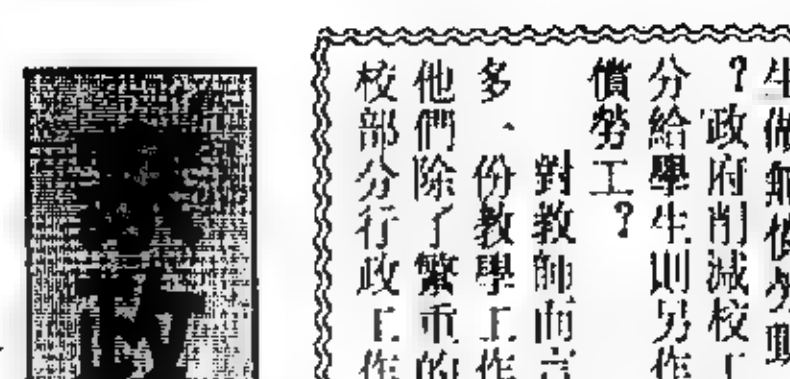 生做無償勞動
？政府削減校工
分給學生則另作
償勞工？
對教師而言
多、份教學工作
他們除了繁重的
校部分行政工作